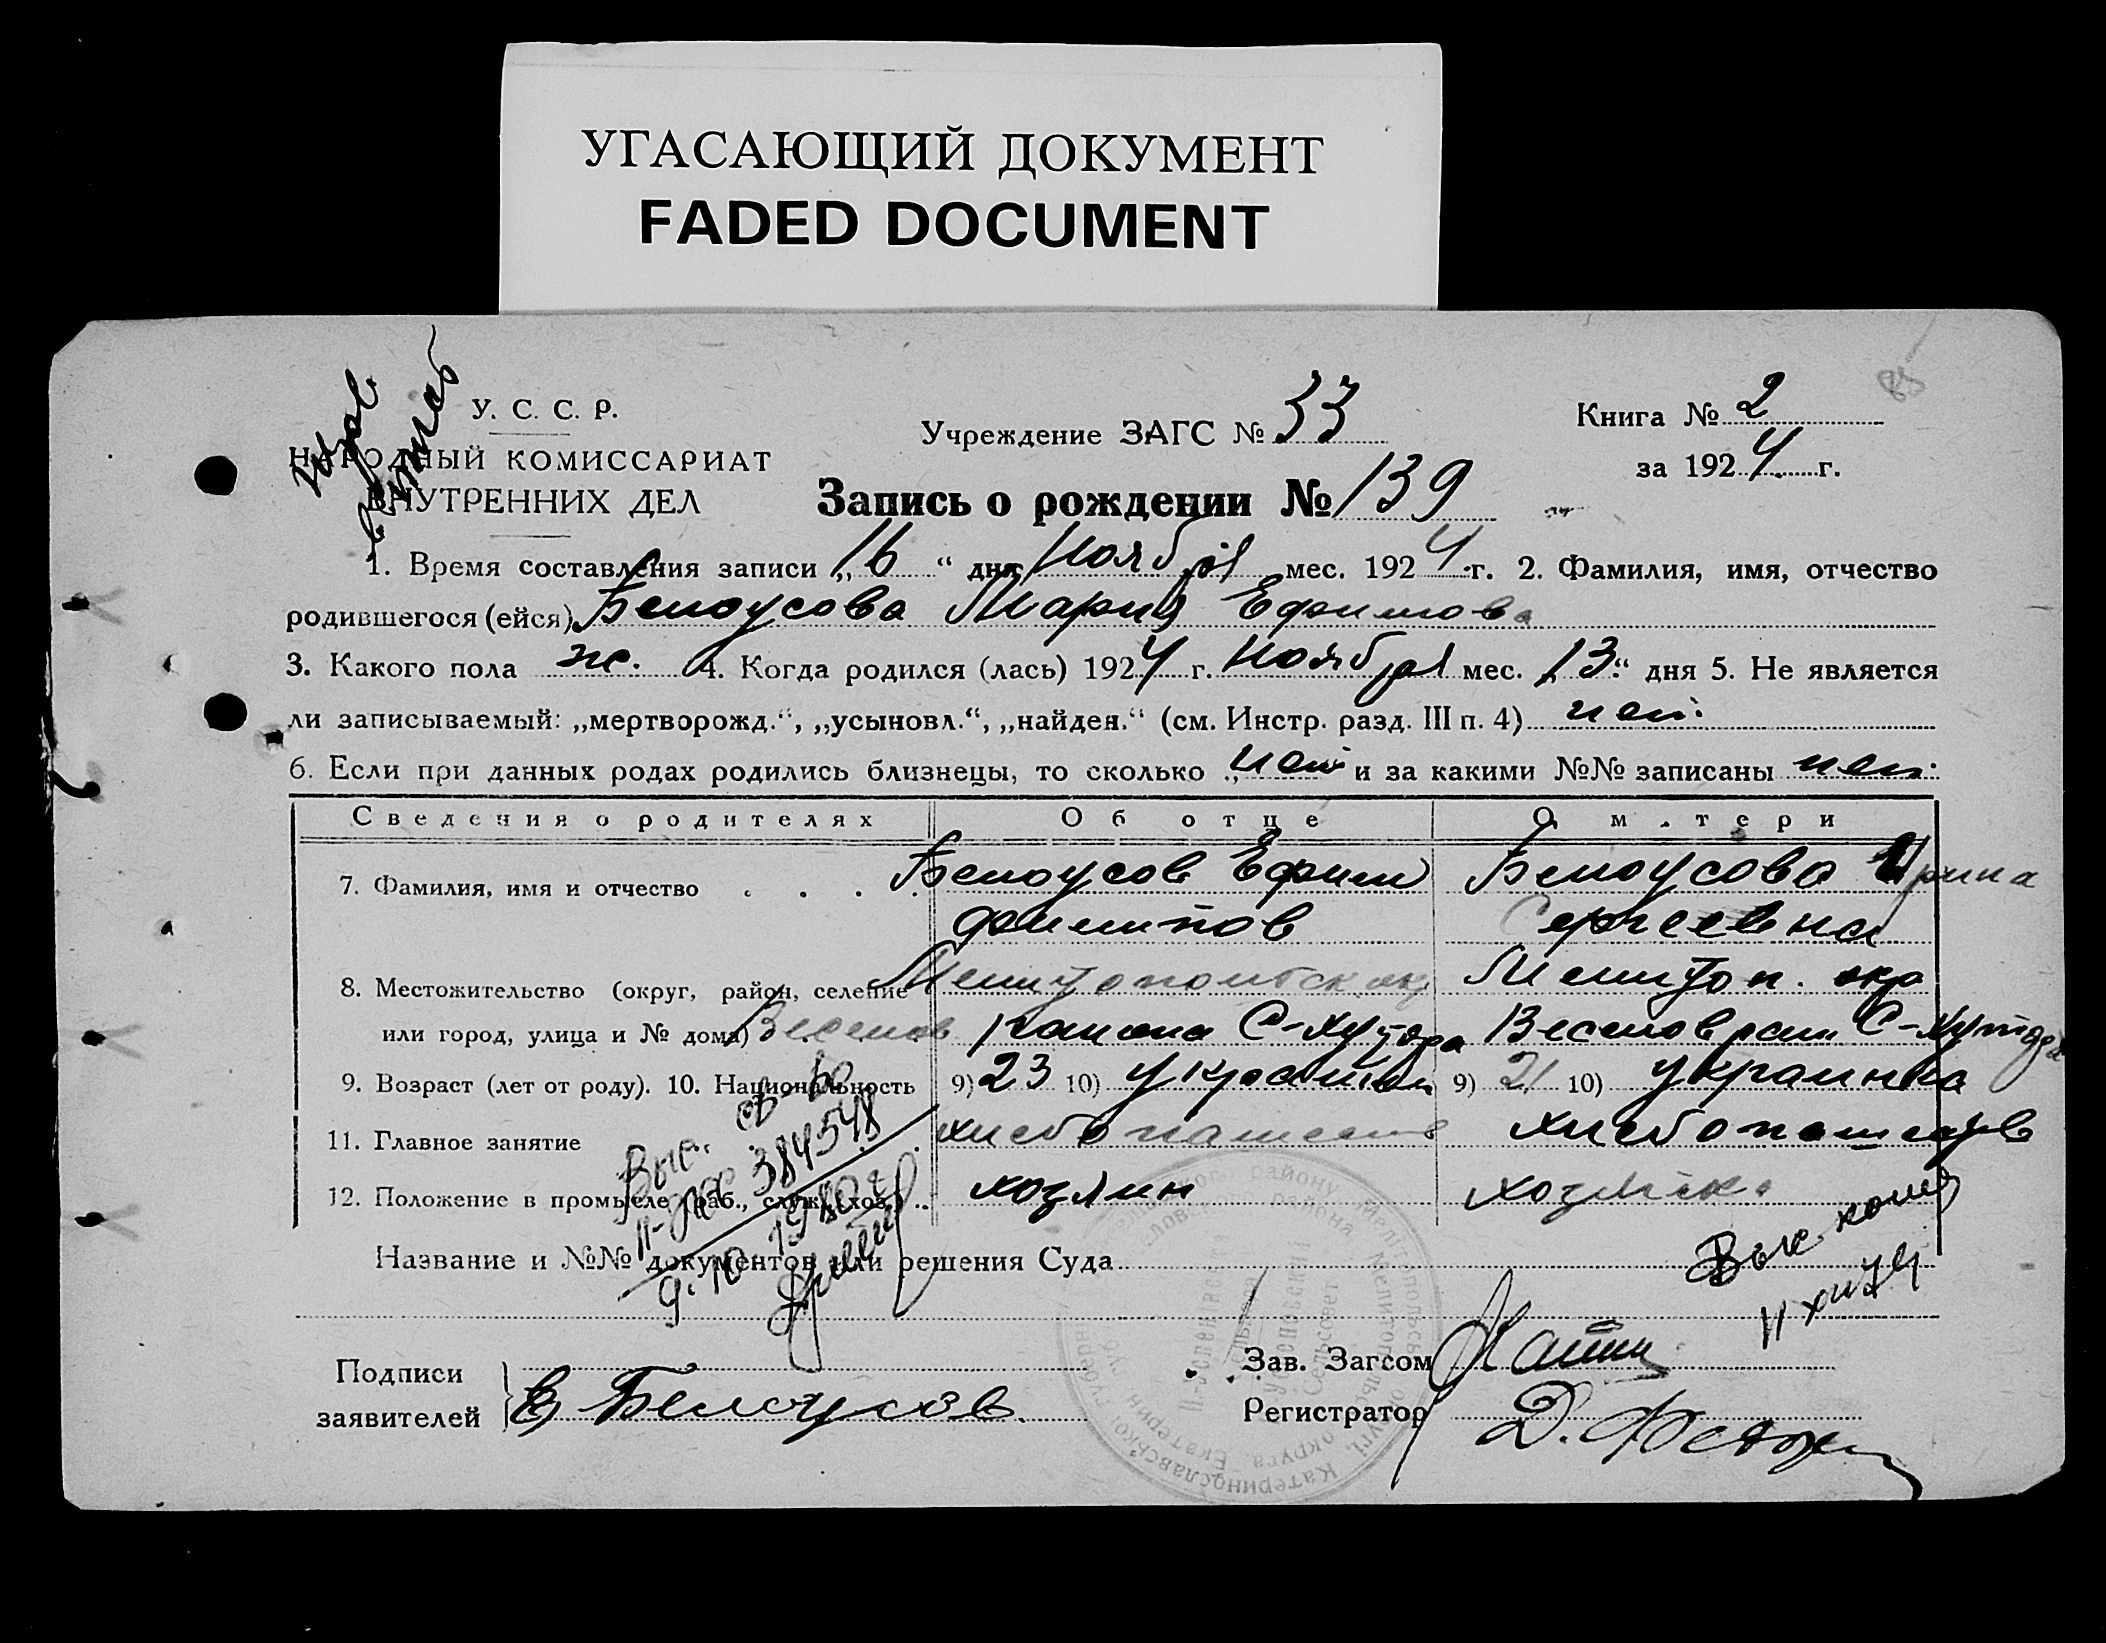 УГАСАЮЩИЙ ДОКУМЕНТ
FADED DOCUMENT
У. С. С. Р.
НАРОДНЫЙ КОМИССАРИАТ
ВНУТРЕННИХ ДЕЛ
Учреждение ЗАГС № 33
Книга № 2
за 1924 г.
Запись о рождении № 139
1. Время составления записи „16“ дня Ноября мес. 1924 г. 2. Фамилия, имя, отчество
родившегося (ейся) Белоусова Мария Ефимова
3. Какого пола ж. 4. Когда родился (лась) 1924 г. Ноября мес. „13“ дня 5. Не является
ли записываемый: „мертворожд.“, „усыновл.“, „найден.“ (см. Инстр. разд. III п. 4) нет
6. Если при данных родах родились близнецы, то сколько „нет и за какими №№ записаны нет
Сведения о родителях Об отце О матери
7. Фамилия, имя и отчество . . . . Белоусов Ефим Белоусова Ирина
Филипов Сергеевна
8. Местожительство (округ, район, селение Мелитопольск окр Мелитоп. окр
или город, улица и № дома) Веселов района С-Хутора Веселов рай С-Хутора
9. Возраст (лет от роду). 10. Национальность 9) 23 10) украинец 9) 21 10) украинка
11. Главное занятие хлебопашеств хлебопашеств
12. Положение в промысле (раб., служ., хоз.) .. хозяин хозяйка
Выс. св-во
II-ЖС 384548
9. 10. 1980 г
Название и №№ документов или решения Суда
Подписи
заявителей Е Белоусов
Зав. Загсом
Регистратор Д.